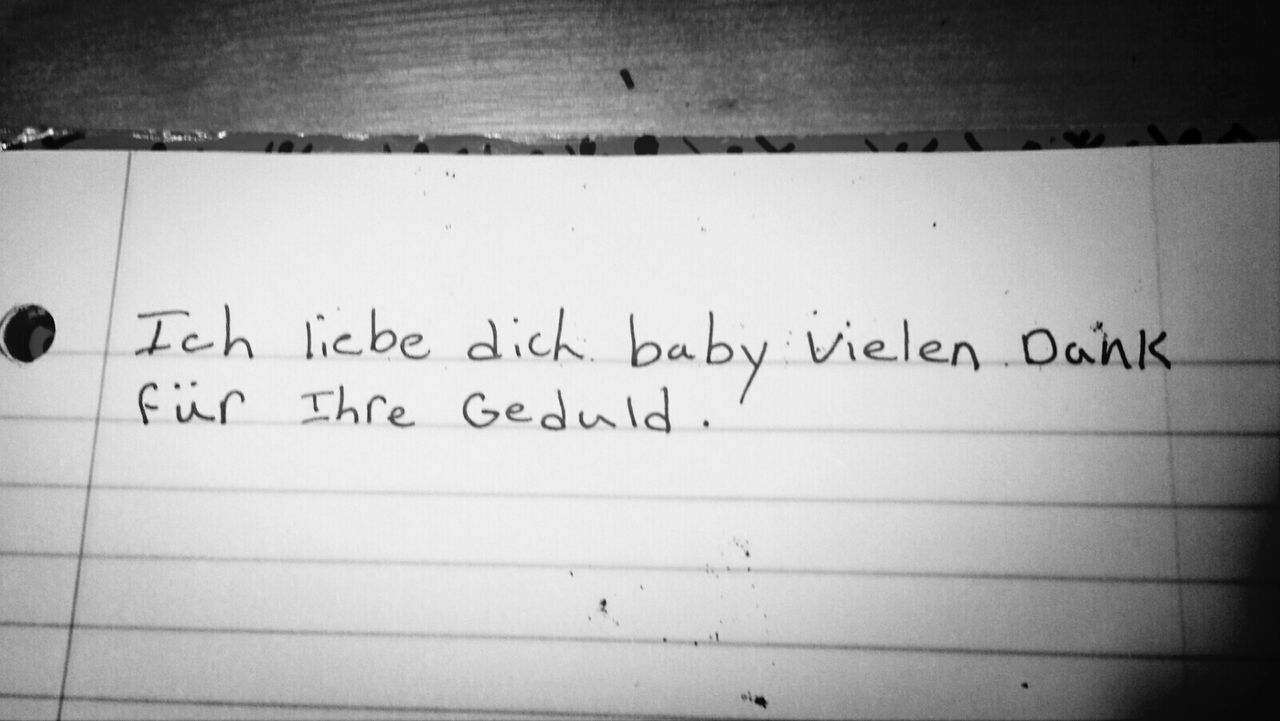 Ich liebe dich baby vielen Dank
für Ihre Geduld.